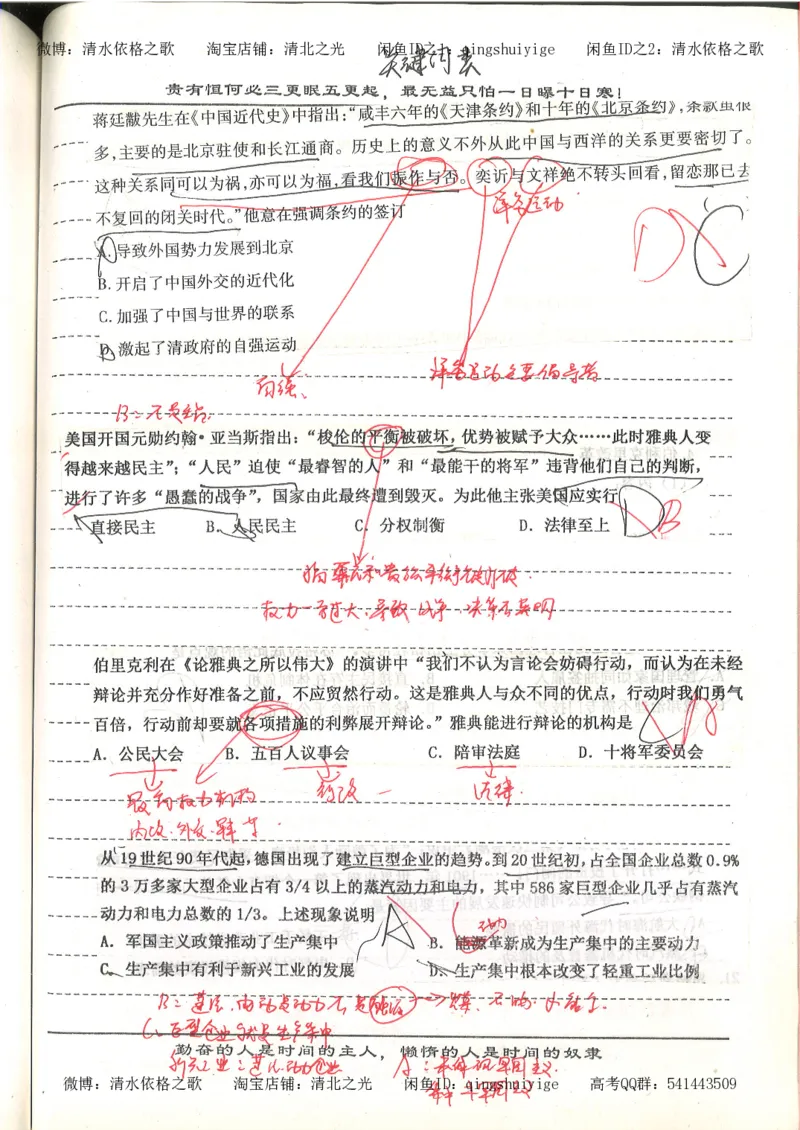 微博：清水依格之歌 淘宝店铺：清北之光 闲鱼ID之1：qingshuiyige 闲鱼ID之2：清水依格之歌
贵有恒何必三更眠五更起，最无益只怕一日曝十日寒！
蒋廷黻先生在《中国近代史》中指出：“咸丰六年的《天津条约》和十年的《北京条约》，条款虽很
多，主要的是北京驻使和长江通商。历史上的意义不外从此中国与西洋的关系更要密切了。
这种关系同可以为祸，亦可以为福，看我们振作与否。奕䜣与文祥绝不转头回看，留恋那已去
不复回的闭关时代。”他意在强调条约的签订
洋务运动
D C
A.导致外国势力发展到北京
B.开启了中国外交的近代化
C.加强了中国与世界的联系
D.激起了清政府的自强运动
自强、
洋务运动主要倡导者
B：不是结
美国开国元勋约翰•亚当斯指出：“梭伦的平衡被破坏，优势被赋予大众……此时雅典人变
得越来越民主”；“人民”迫使“最睿智的人”和“最能干的将军”违背他们自己的判断，
进行了许多“愚蠢的战争”，国家由此最终遭到毁灭。为此他主张美国应实行
D B
直接民主 B．人民民主 C．分权制衡 D．法律至上
权力一方过大，导致战争、决策不英明
伯里克利在《论雅典之所以伟大》的演讲中“我们不认为言论会妨碍行动，而认为在未经
辩论并充分作好准备之前，不应贸然行动。这是雅典人与众不同的优点，行动时我们勇气
百倍，行动前却要就各项措施的利弊展开辩论。”雅典能进行辩论的机构是
A．公民大会 B．五百人议事会 C．陪审法庭 D．十将军委员会
最高权力机构 行政 法律
内政、外交、战争
从19世纪90年代起，德国出现了建立巨型企业的趋势。到20世纪初，占全国企业总数0.9%
的3万多家大型企业占有3/4以上的蒸汽动力和电力，其中586家巨型企业几乎占有蒸汽
动力和电力总数的1/3。上述现象说明
A
动力
A．军国主义政策推动了生产集中 B．能源革新成为生产集中的主要动力
C．生产集中有利于新兴工业的发展 D．生产集中根本改变了轻重工业比例
C、巨型企业就是生产集中
勤奋的人是时间的主人，懒惰的人是时间的奴隶
微博：清水依格之歌 淘宝店铺：清北之光 闲鱼ID：qingshuiyige 高考QQ群：541443509